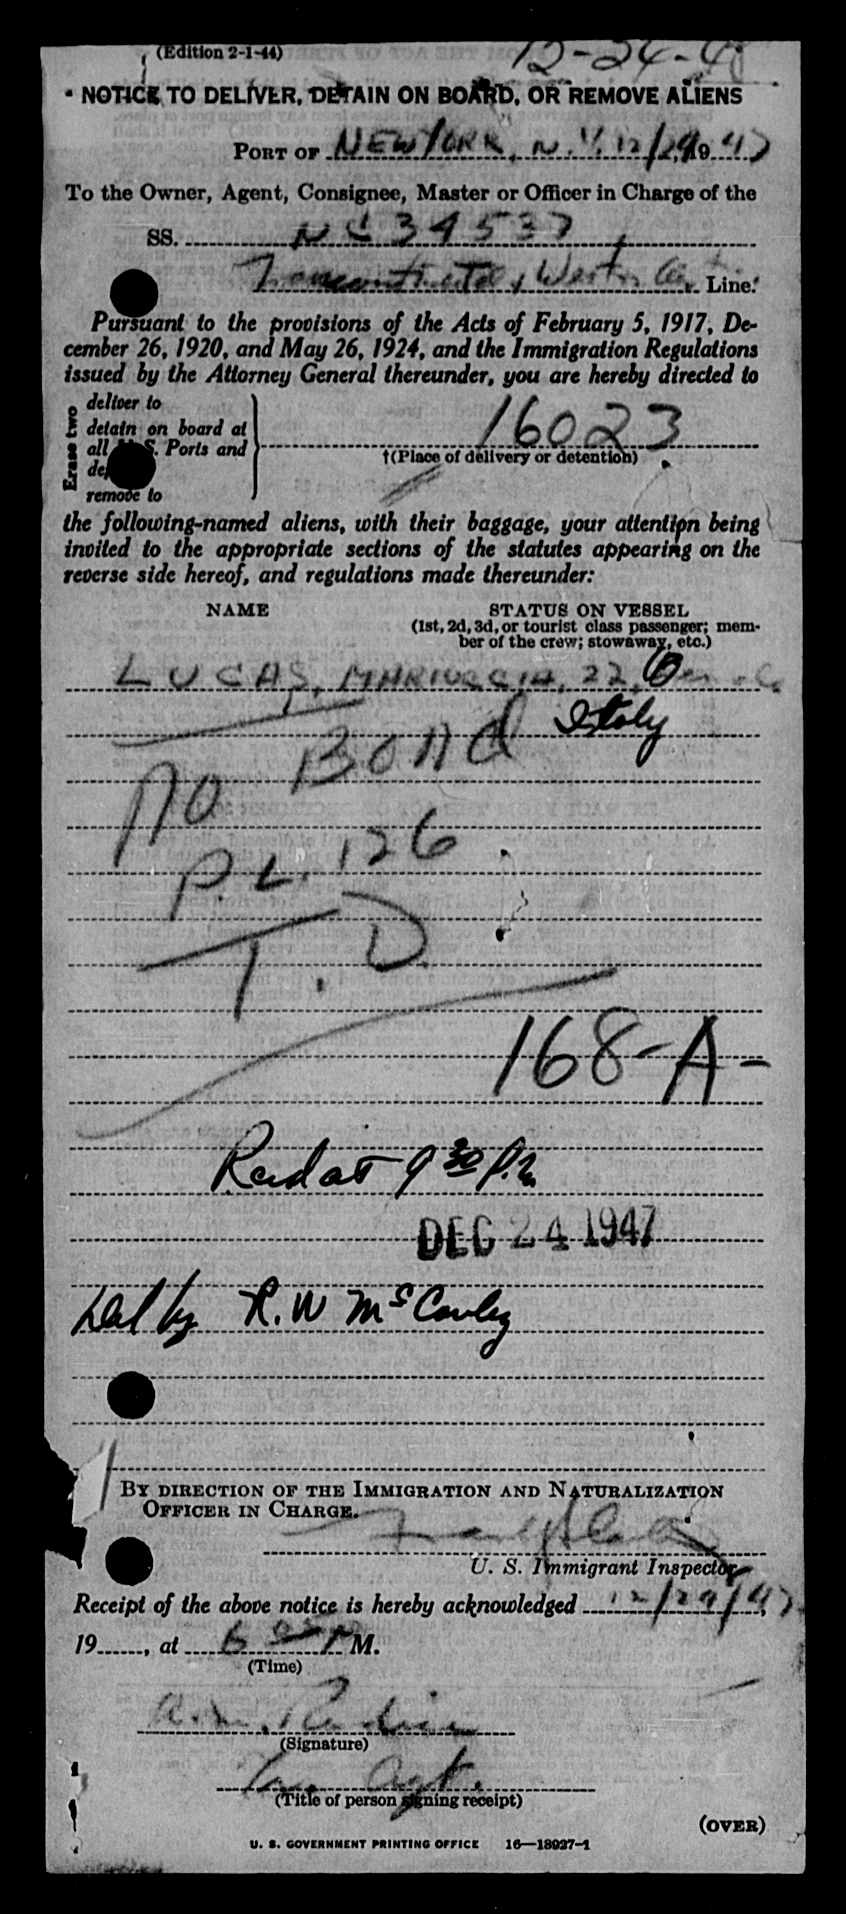 (Edition 2-1-44)
12-24-4
NOTICE TO DELIVER, DETAIN ON BOARD, OR REMOVE ALIENS
PORT OF NEW YORK, N.Y. 12/24, 1947
To the Owner, Agent, Consignee, Master or Officer in Charge of the
SS. NC 34537
Transcontinental & Western Air Line:
Pursuant to the provisions of the Acts of February 5, 1917, De-
cember 26, 1920, and May 26, 1924, and the Immigration Regulations
issued by the Attorney General thereunder, you are hereby directed to
Erase two
deliver to
detain on board at
all U.S. Ports and
remove to
16023
†(Place of delivery or detention)
the following-named aliens, with their baggage, your attention being
invited to the appropriate sections of the statutes appearing on the
reverse side hereof, and regulations made thereunder:
NAME STATUS ON VESSEL
(1st, 2d, 3d, or tourist class passenger; mem-
ber of the crew; stowaway, etc.)
LUCAS, MARIUCCIA, 22,
Italy
no Bond
P.L. 126
T.D.
168-A-
Recd at 9 30 P.M.
DEC 24 1947
Del by R. W McCauley
BY DIRECTION OF THE IMMIGRATION AND NATURALIZATION
OFFICER IN CHARGE.
U. S. Immigrant Inspector
Receipt of the above notice is hereby acknowledged 12/24/47,
19......, at 6 M.
(Time)
(Signature)
Agt.
(Title of person signing receipt)
(OVER)
U. S. GOVERNMENT PRINTING OFFICE 16—18927-1